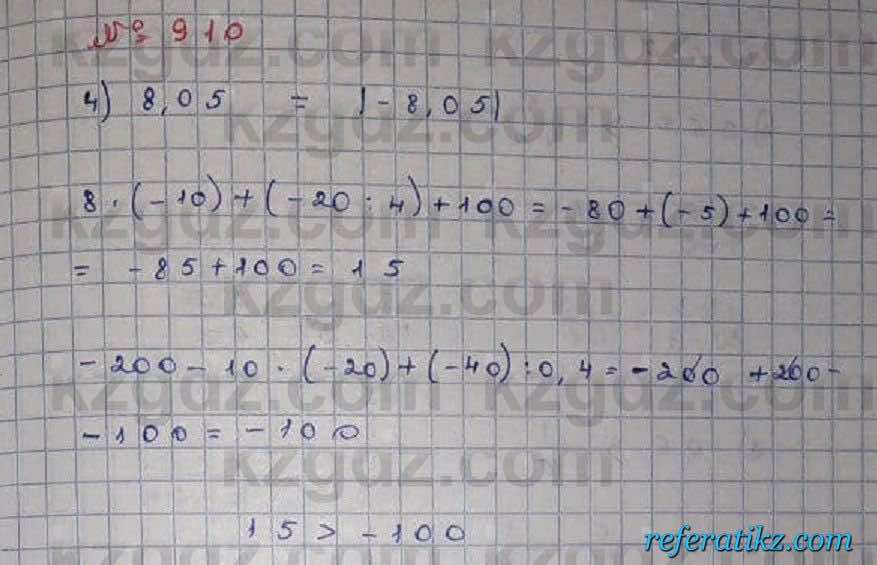 № 910
4) 8,05 = |-8,05|
8 · (-10) + (-20 : 4) + 100 = -80 + (-5) + 100 =
= -85 + 100 = 15
-200 - 10 · (-20) + (-40) : 0,4 = -200 + 200 -
-100 = -100
15 > -100
kzgdz.com kzgdz.com
kzgdz.com
kzgdz.com kzgdz.com
kzgdz.com
kzgdz.com kzgdz.com
kzgdz.com
kzgdz.com
referatikz.com